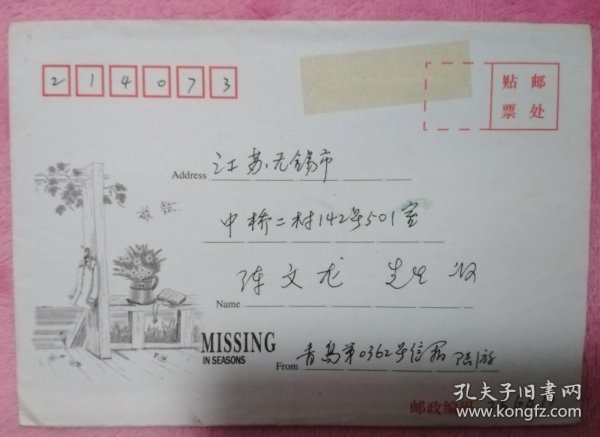 214073
贴 邮
票 处
Address 江苏.无锡市
中桥二村142号501室
Name 陈文龙 先生 收
MISSING
IN SEASONS
From 青岛第0362号信箱 陆游
邮政编码
孔夫子旧书网
www.kongfz.com